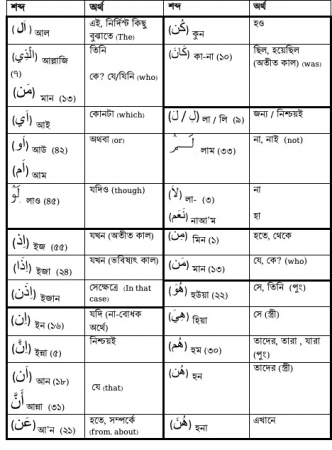 শব্দ অর্থ শব্দ অর্থ
(اَل) আল এই, নির্দিষ্ট কিছু বুঝাতে (The) (كُن) কুন হও
(الَّذِي) আল্লাজি (৭) তিনি (كَانَ) কা-না (১০) ছিল, হয়েছিল (অতীত কাল) (was)
(مَن) মান (১৩) কে? যে/যিনি (who)
(أَي) আই কোনটা (which) (لَ / لِ) লা / লি (৯) জন্য / নিশ্চয়ই
(أَو) আউ (৪২) অথবা (or) لَم লাম (৩৩) না, নাই (not)
(أَم) আম
لَوْ লাও (৪৫) যদিও (though) (لاَ) লা- (৩) না
(نَعَم) নাআ'ম হা
(إِذ) ইজ (৫৫) যখন (অতীত কাল) (مِن) মিন (১) হতে, থেকে
(إِذَا) ইজা (২৪) যখন (ভবিষ্যৎ কাল) (مَن) মান (১৩) যে, কে? (who)
(إِذَن) ইজান সেক্ষেত্রে (In that case) (هُوَ) হুউয়া (২২) সে, তিনি (পুং)
(إِن) ইন (১৬) যদি (না-বোধক অর্থে) (هِيَ) হিয়া সে (স্ত্রী)
(إِنَّ) ইন্না (৫) নিশ্চয়ই (هُم) হুম (৩০) তাদের, তারা , যারা (পুং)
(أَن) আন (১৮) যে (that) (هُن) হুন তাদের (স্ত্রী)
أَنَّ আন্না (৩১)
(عَن) আ'ন (২১) হতে, সম্পর্কে (from, about) (هُنَ) হুনা এখানে